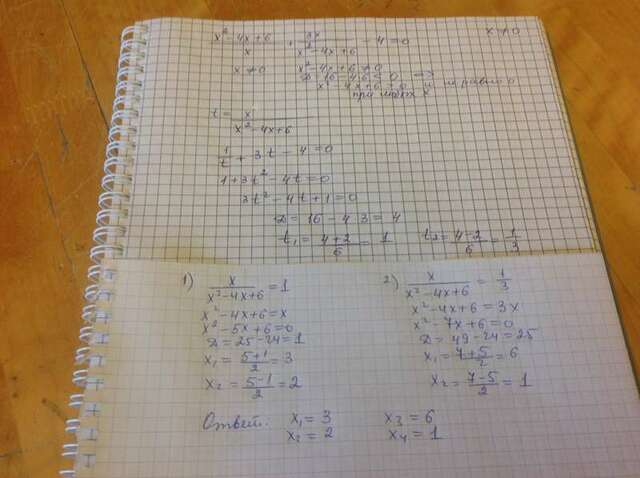 (x²-4x+6)/x + 3x/(x²-4x+6) - 4 = 0    x≠0
x≠0    x²-4x+6≠0
D=16-4·6<0 =>
x²-4x+6 не равно 0
при любых x
t = x/(x²-4x+6)
1/t + 3t - 4 = 0
1+3t²-4t=0
3t²-4t+1=0
D=16-4·3=4
t₁=(4+2)/6=1    t₂=(4-2)/6=1/3
1) x/(x²-4x+6)=1
x²-4x+6=x
x²-5x+6=0
D=25-24=1
x₁=(5+1)/2=3
x₂=(5-1)/2=2
2) x/(x²-4x+6)=1/3
x²-4x+6=3x
x²-7x+6=0
D=49-24=25
x₁=(7+5)/2=6
x₂=(7-5)/2=1
Ответ: x₁=3    x₃=6
x₂=2    x₄=1